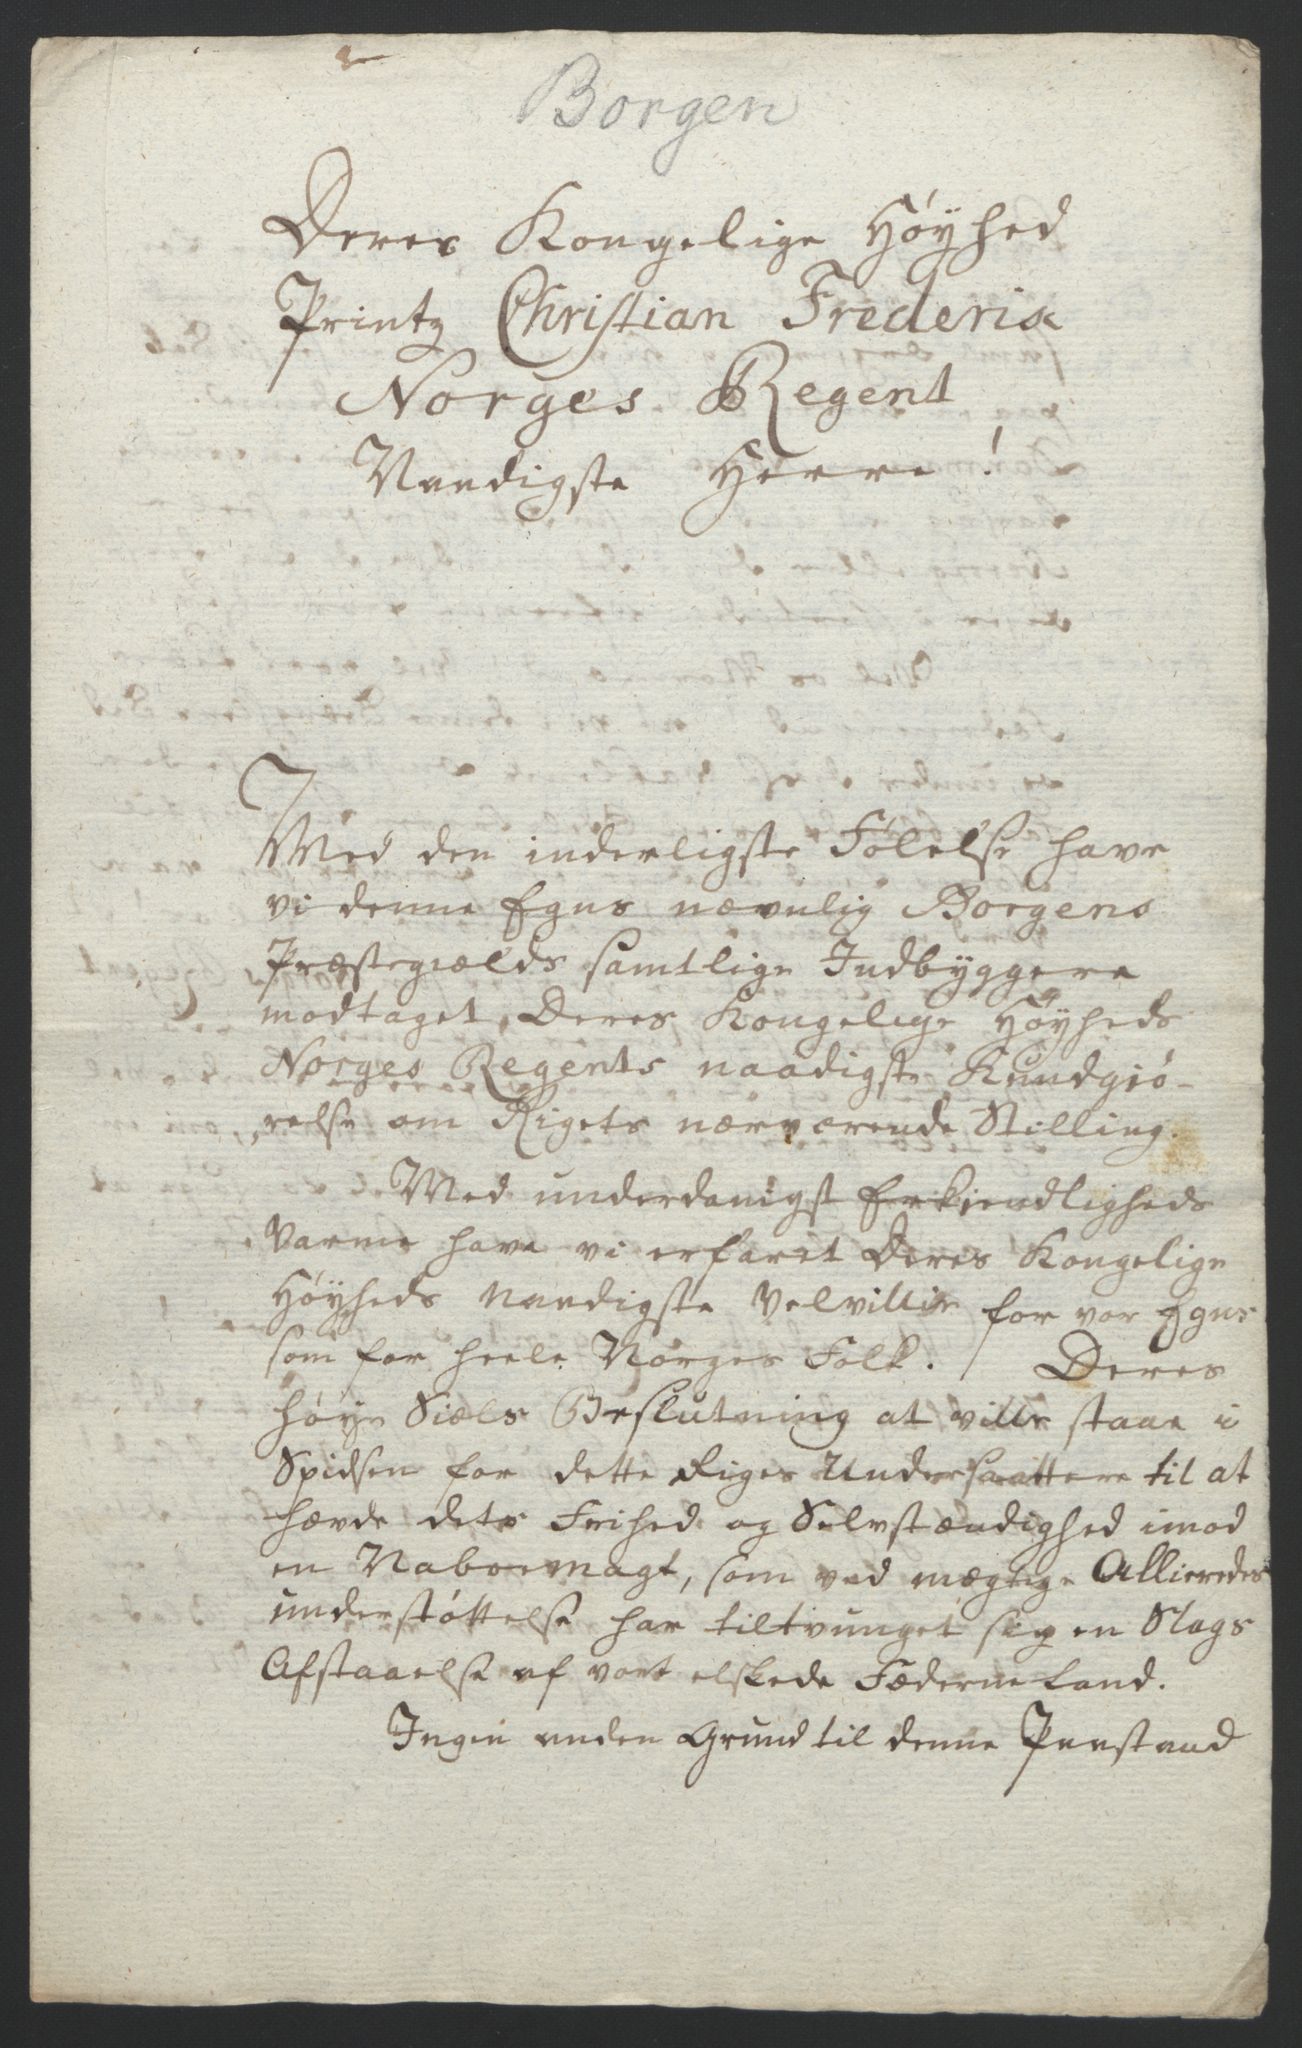 Borgen
Deres Kongelige Høyhed
Printz Christian Frederic
Norges Regent
Naadigste Herre!
Med den inderligste Følelse have
vi denne Egns nævnlig Borgens
Præstegiælds samtlige Indbyggere
modtaget Deres Kongelige Høyheds
Norges Regents naadigste Kundgiø-
relse om Rigets nærværende Stilling.
Med underdanigst Erkiendligheds
Varme have vi erfaret Deres Kongelige
Høyheds naadigste Velvillie for vor Egns
som for heele Norges Folk. Deres
høye Siæls Beslutning at ville staae i
Spidsen for dette Riges Undersaattere til at
hævde dets Frihed og Selvstændighed imod
en Naboemagt, som ved mægtige Allieredes
understøttelse har tiltvunget sig en Slags
Afstaaelse af vort elskede Fæderneland.
Ingen anden Grund til denne Paastand